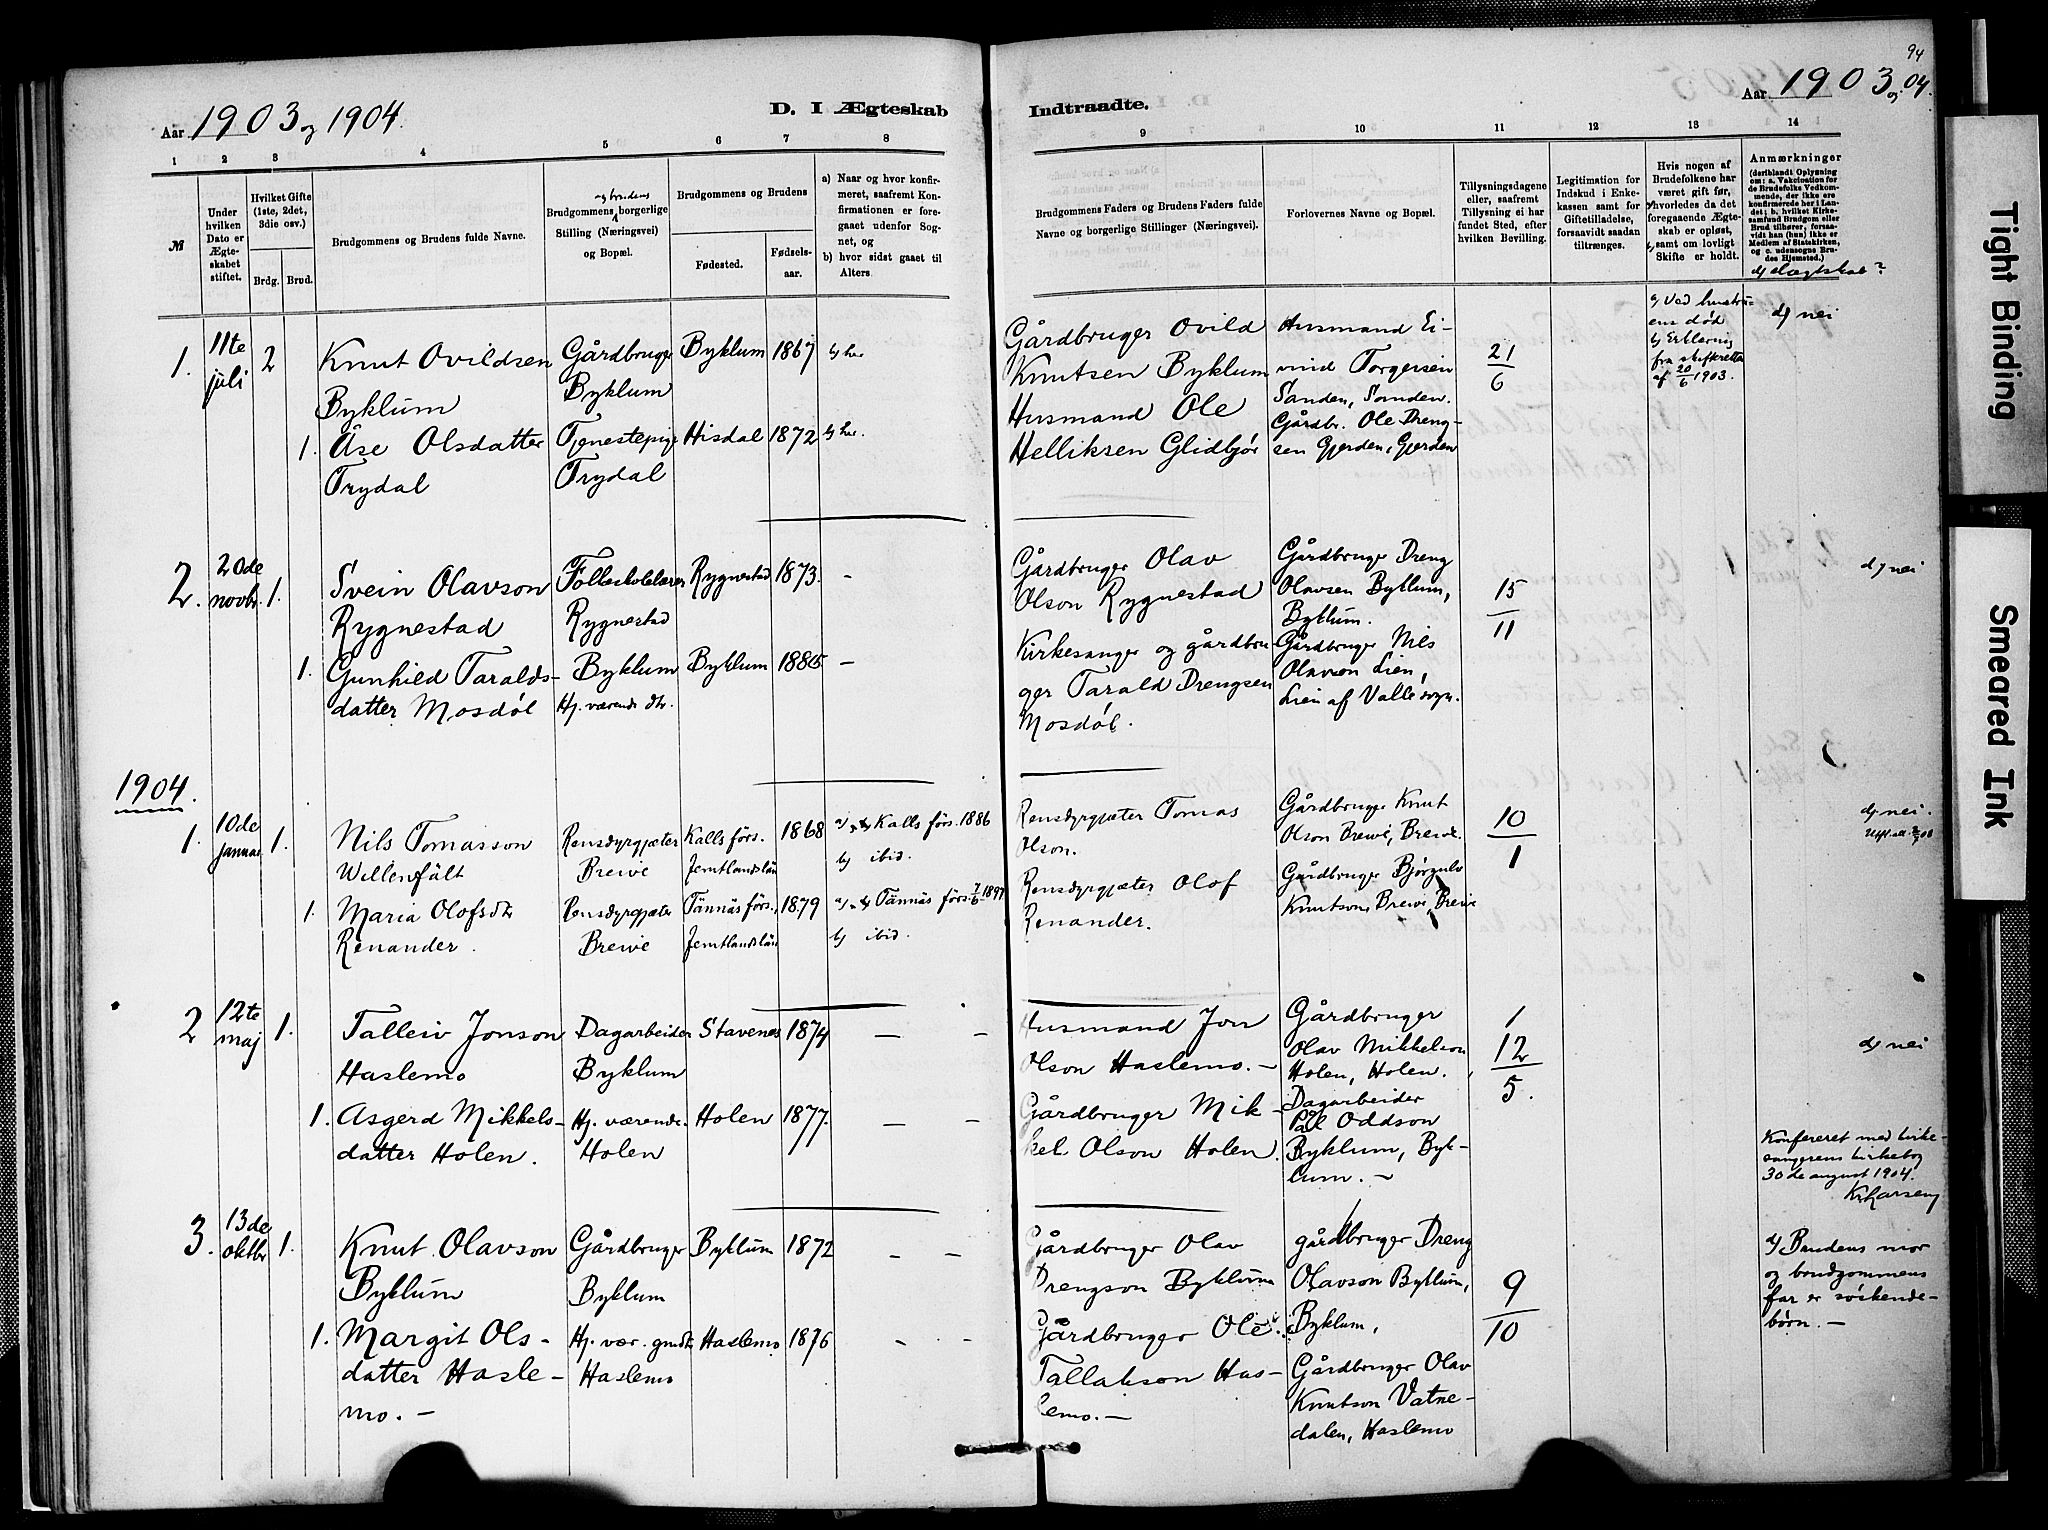 94
Aar 1903 og 1904.
D. I Ægteskab
Indtraadte.
Aar 1903 og 04.
1 2 3 4 5 6 7 8
9 10 11 12 13 14
№
Under hvilken Dato er Ægteskabet stiftet.
Hvilket Gifte (1ste, 2det, 3die osv.)
Brdg. Brud.
Brudgommens og Brudens fulde Navne.
og brudens
Brudgommens borgerlige Stilling (Næringsvei) og Bopæl.
Brudgommens og Brudens
Fødested.
Fødselsaar.
a) Naar og hvor konfirmeret, saafremt Konfirmationen er foregaaet udenfor Sognet, og
b) hvor sidst gaaet til Alters.
Brudgommens Faders og Brudens Faders fulde Navne og borgerlige Stillinger (Næringsvei).
Forlovernes Navne og Bopæl.
Tillysningsdagene eller, saafremt Tillysning ei har fundet Sted, efter hvilken Bevilling.
Legitimation for Indskud i Enkekassen samt for Giftetilladelse, forsaavidt saadan tiltrænges.
Hvis nogen af Brudefolkene har været gift før, hvorledes da det foregaaende Ægteskab er opløst, samt om lovligt Skifte er holdt.
Anmærkninger (deriblandt Oplysning om: a. Vaktination for de Brudefolks Vedkommende, der ikke ere konfirmerede her i Landet; b. hvilket Kirkesamfund Brudgom eller Brud tilhører, forsaavidt han (hun) ikke er Medlem af Statskirken, og c. udensogns Brudes Hjemsted.)
d) slægtskab?
1. 11te juli 2
Knut Ovildsen
Byklum
Gårdbruger
Byklum
Byklum 1867 b) her
1. Åse Olsdatter
Trydal
Tjenestepige
Trydal
Hisdal 1872 b) her.
Gårdbruger Ovild
Knutsen Byklum
Husmand Ole
Helliksen Glidbjør
Husmand Ei-
vind Torgersen
Sanden, Sanden.
Gårdbr. Ole Dreng-
sen Gjerden, Gjerden
21
6
a) Ved hustru-
ens død
b) Erklæring
fra skifteretten
af 20/6 1903.
d) nei
2. 20de novbr. 1.
Svein Olavson
Rygnestad
Folkeskolelærer
Rygnestad
Rygnestad 1873. -
1. Gunhild Taralds-
datter Mosdøl
Byklum
Hj. værende dtr.
Byklum 1885 -
Gårdbruger Olav
Olson Rygnestad
Kirkesanger og gårdbru
ger Tarald Drengsen
Mosdøl.
Gårdbruger Dreng
Olavsen Byklum,
Byklum.
Gårdbruger Nils
Olavson Lien,
Lien af Valle sogn.
15
11
d) nei
1904.
1. 10de januar 1.
Nils Tomasson
Willenfält
Rensdyrgjæter
Breive
Kalls förs.
Jemtlandslän
1868
a) Kalls förs. 1886
b) ibid.
1. Maria Olofsdtr
Renander.
Rensdyrgjæter
Breive
Tännäs förs.,
Jemtlandslän
1879
a) Tännäs förs. 7/6 1897
b) ibid.
Rensdyrgjæter Tomas
Olson.
Rensdyrgjæter Olof
Renander.
Gårdbruger Knut
Olson Breive, Breive.
Gårdbruger Bjørgulv
Knutson Breive, Breive
10
1
d) nei.
2 12te maj 1.
Talleiv Jonson
Haslemo
Dagarbeider
Byklum
Stavenes 1874 - -
1. Asgerd Mikkels-
datter Holen.
Hj. værende.
Holen
Holen 1877. - -
Husmand Jon
Olson Haslemo. -
Gårdbruger Mik-
kel Olson Holen.
Gårdbruger
Olav Mikkelson
Holen, Holen.
Dagarbeider
Pål Oddson
Byklum, Byk-
lum. -
1
12
5.
d) nei
Konfereret med kirke-
sangerens kirkebog
30de august 1904.
Kr. Larsen
3. 13de oktbr 1.
Knut Olavson
Byklum
Gårdbruger
Byklum
Byklum 1872 - -
1. Margit Ols-
datter Hasle-
mo. -
Hj. vær. grdtr
Haslemo
Haslemo 1876 - -
Gårdbruger Olav
Drengson Byklum
Gårdbruger Ole
Tallakson Has-
lemo. -
gårdbruger Dreng
Olavson Byklum,
Byklum,
Gårdbruger Olav
Knutson Vatne-
dalen, Haslemo
9
10
d) Brudens mor
og brudgommens
far er søskende-
børn. -
Tight Binding
Smeared Ink